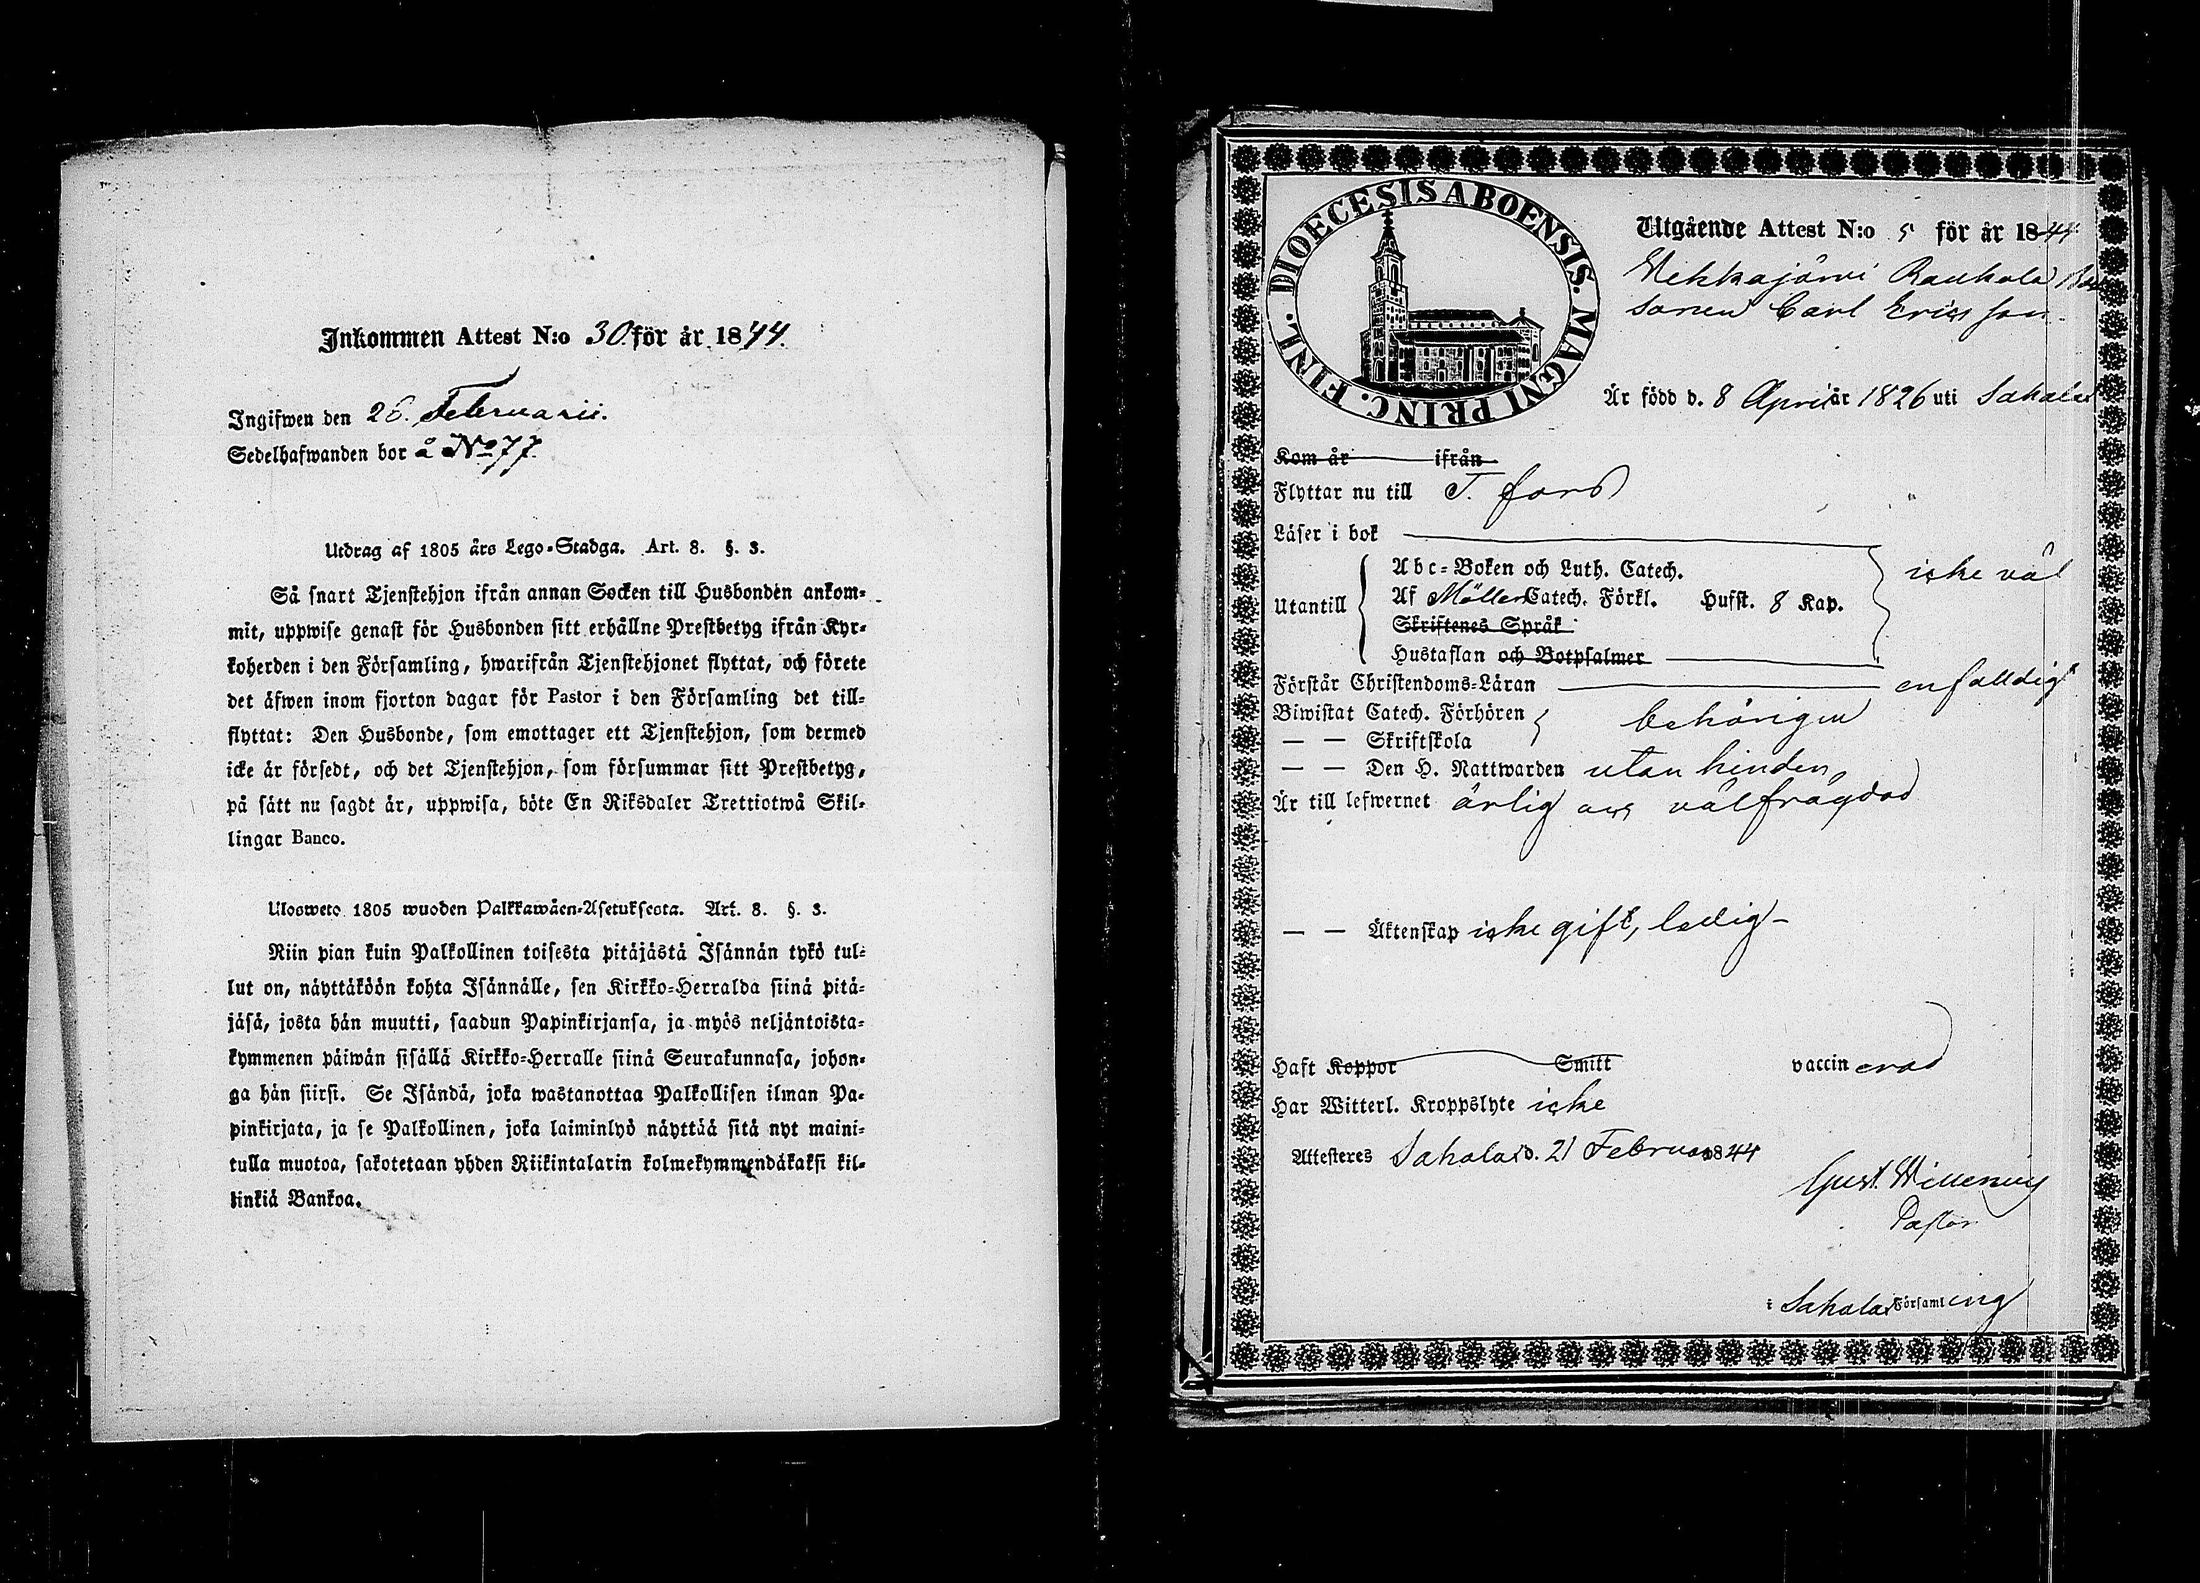 Inkommen Attest N:o 30 för år 1844.
Ingifwen den 26. Februarii.
Sedelhafwanden bor å No 77.
Utdrag af 1805 års Lego-Stadga. Art. 8. §. 3.
Så snart Tjenstehjon ifrån annan Socken till Husbonden ankom-
mit, uppwise genast för Husbonden sitt erhållne Prestbetyg ifrån Kyr-
koherden i den Församling, hwarifrån Tjenstehjonet flyttat, och förete
det äfwen inom fjorton dagar för Pastor i den Församling det till-
flyttat: Den Husbonde, som emottager ett Tjenstehjon, som dermed
icke är försedt, och det Tjenstehjon, som försummar sitt Prestbetyg,
på sätt nu sagdt är, uppwisa, böte En Riksdaler Trettiotwå Skil-
lingar Banco.
Ulosweto 1805 wuoden Palkkawäen-Asetuksesta. Art. 8. §. 3.
Niin pian kuin Palkollinen toisesta pitäjästä Isännän tykö tul-
lut on, näyttäköön kohta Isännälle, sen Kirkko-Herralda siinä pitä-
jäsä, josta hän muutti, saadun Papinkirjansa, ja myös neljäntoista-
kymmenen päiwän sisällä Kirkko-Herralle siinä Seurakunnasa, johon-
ga hän siirsi. Se Isändä, joka wastanottaa Palkollisen ilman Pa-
pinkirjata, ja se Palkollinen, joka laiminlyö näyttää sitä nyt maini-
tulla muotoa, sakotetaan yhden Riikintalarin kolmekymmendäkaksi kil-
linkiä Bankoa.
DIOECESIS ABOENSIS. MAGNI PRINC. FINL.
Utgående Attest N:o 5 för år 1844
Wekkajärvi Rauhala
sonen Carl Ericsson
Är född d. 8 April år 1826 uti Sahalax
Kom år ifrån
Flyttar nu till T. fors
Läser i bok
Abc-Boken och Luth. Catech. icke väl
Utantill Af Möllers Catech. Förkl. Hufst. 8 Kap.
Skriftenes Språk
Hustaflan och Botpsalmer
Förstår Christendoms-Läran enfalldigt
Biwistat Catech. Förhören behörigen
— — Skriftskola
— — Den H. Nattwarden utan hinder
Är till lefwernet ärlig och välfrägdad
— — Äktenskap icke gift, ledig
Haft Koppor Smitt vaccinerad
Har Witterl. Kroppslyte icke
Attesteres Sahalax d. 21 Februar 1844
Gust.
Pastor
i Sahalax Församling